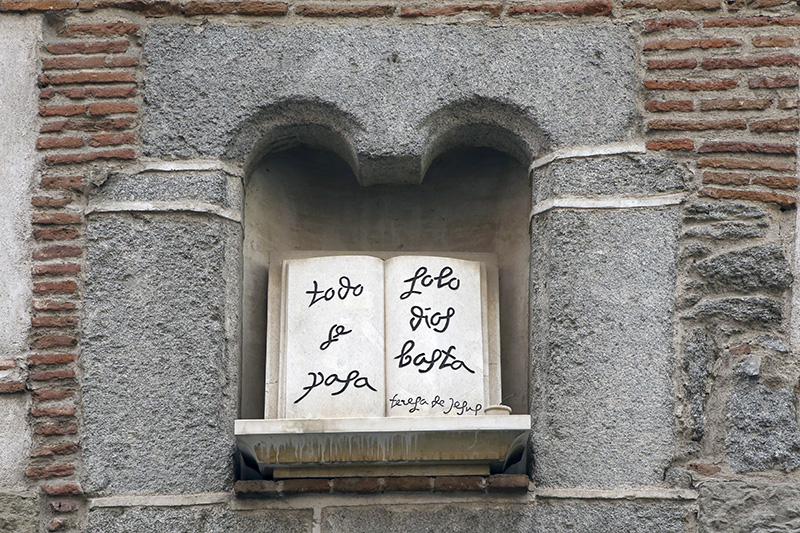 todo
se
pasa
solo
dios
basta
teresa de jesus